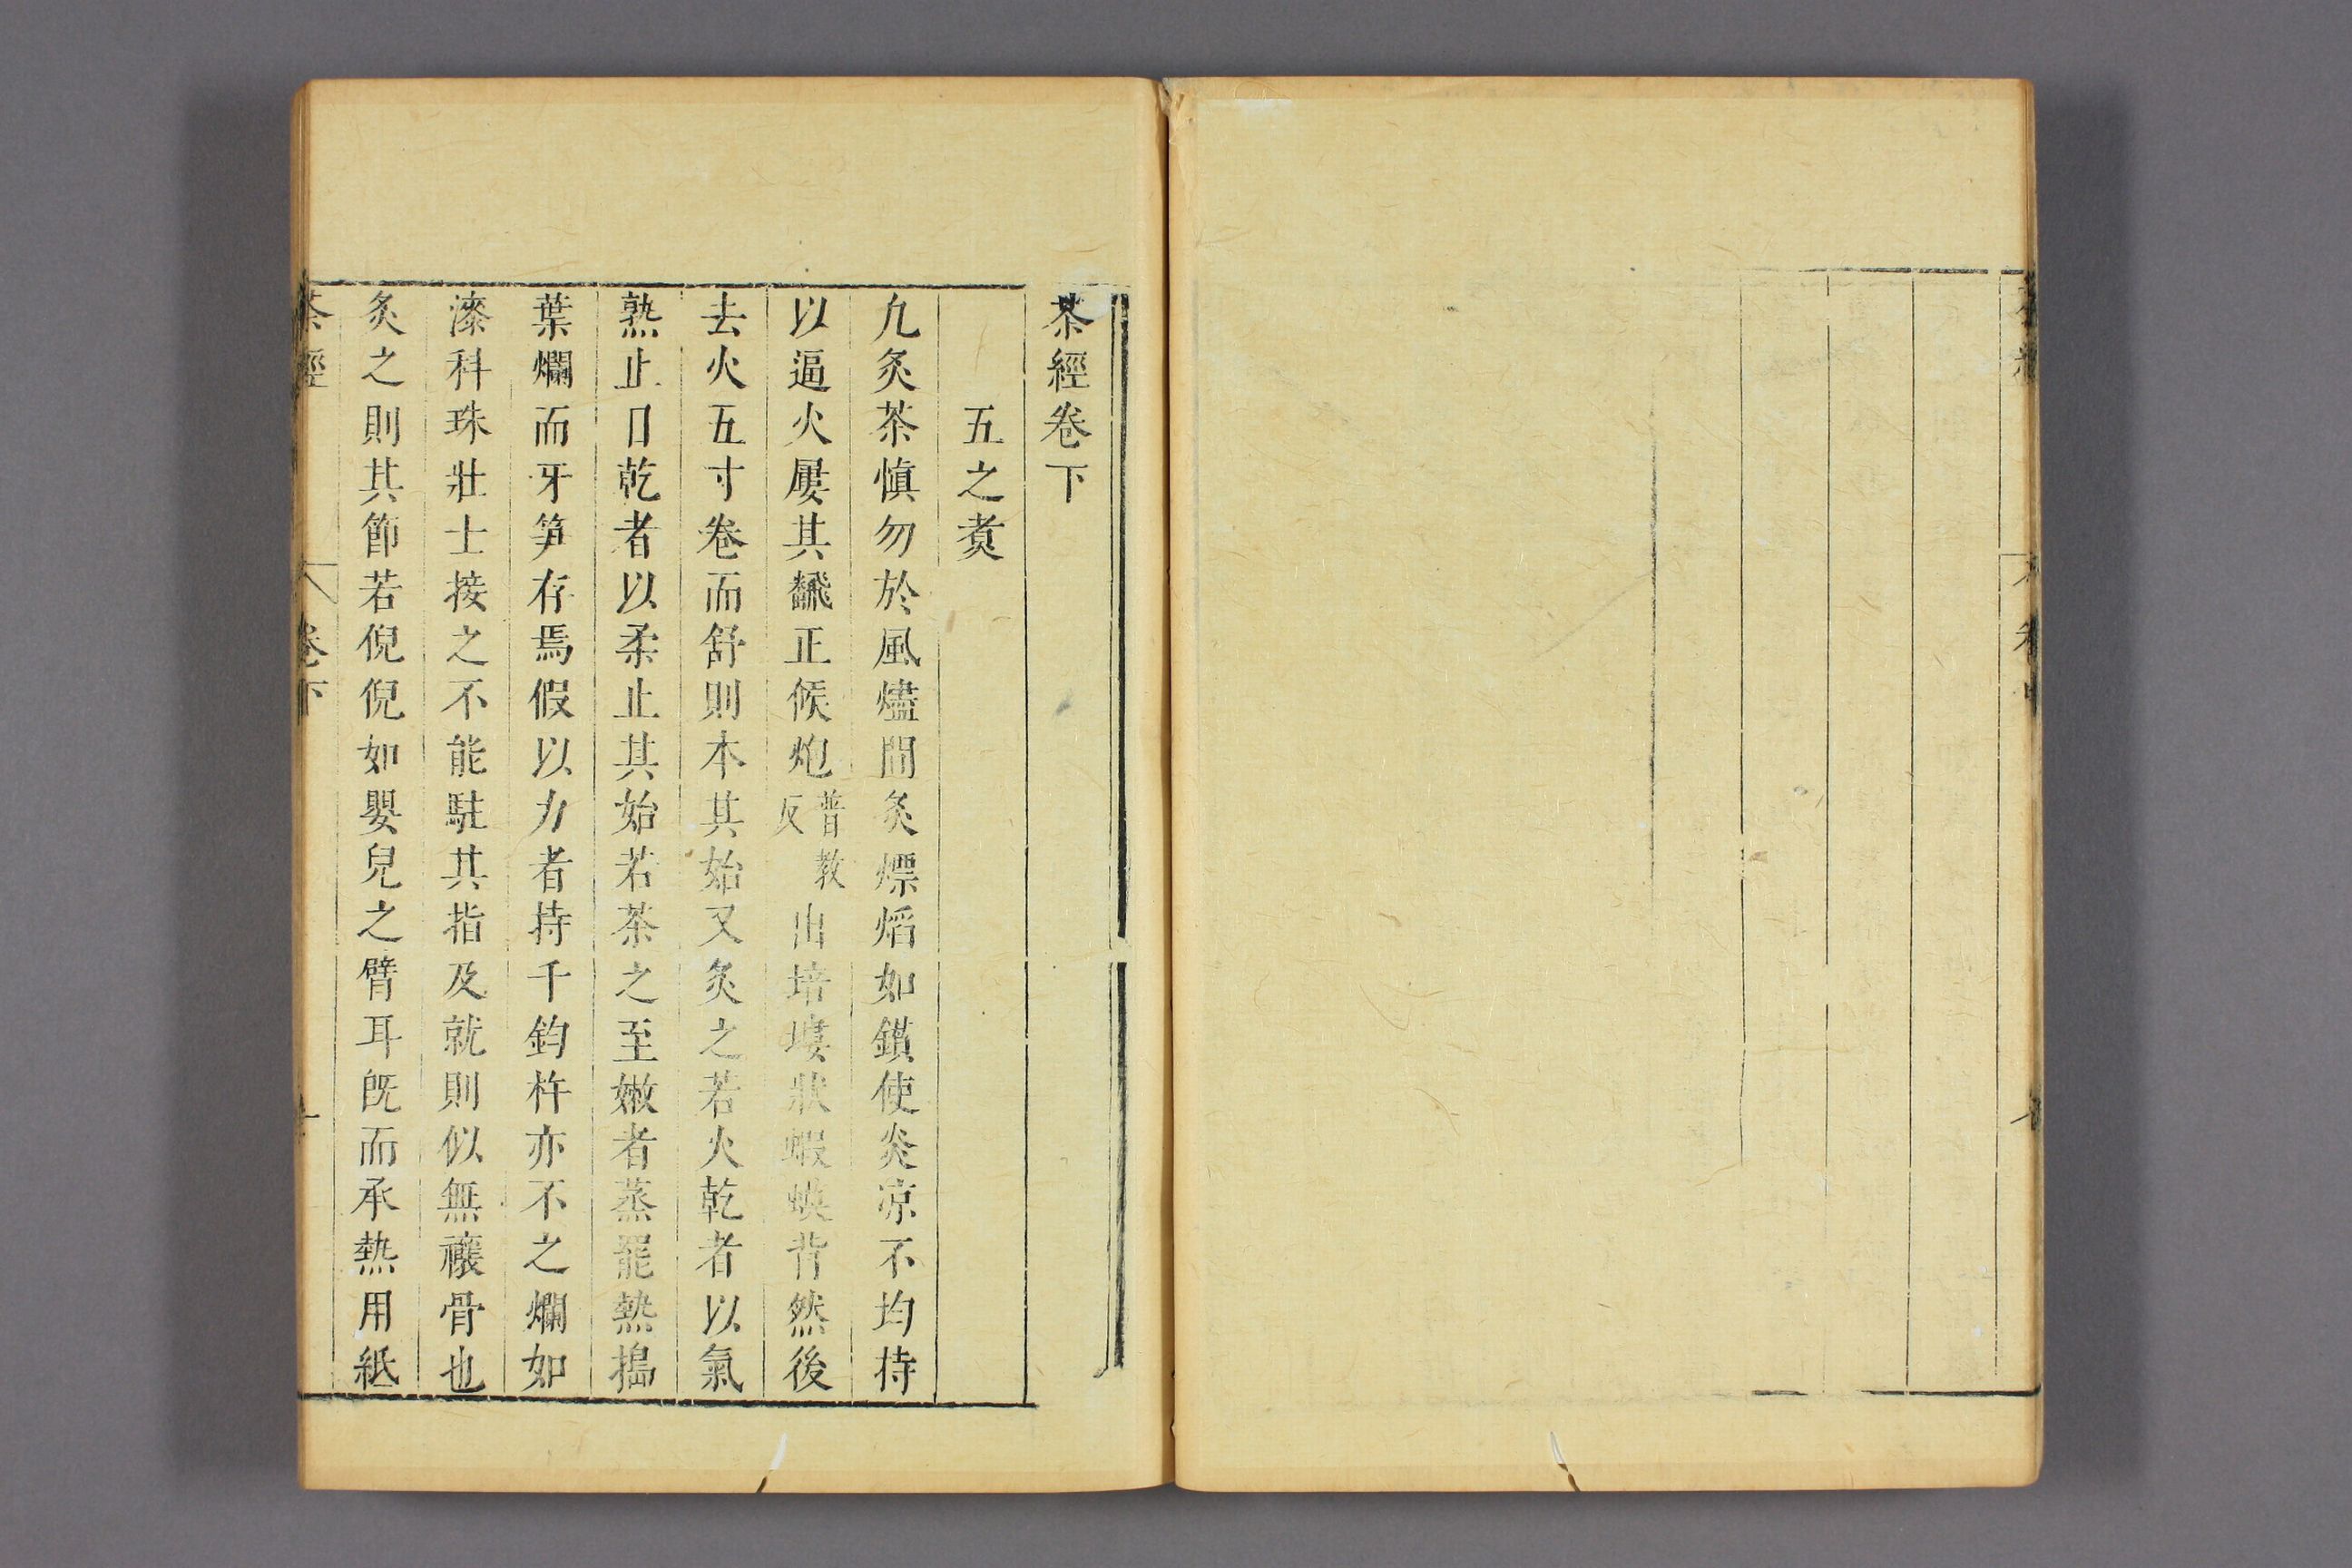 茶經卷下
五之煮
凢炙茶愼勿於風燼間炙熛熖如鑚使炎凉不均持
以逼火屢其飜正候炮普教反出培塿狀蝦蟆背然後
去火五寸卷而舒則本其始又炙之若火乾者以氣
熟止日乾者以柔止其始若茶之至嫩者蒸罷熱搗
葉爛而牙笋存焉假以力者持千鈞杵亦不之爛如
漆科珠壯士接之不能駐其指及就則似無禳骨也
炙之則其節若倪倪如嬰兒之臂耳旣而承熱用紙
茶經 卷下